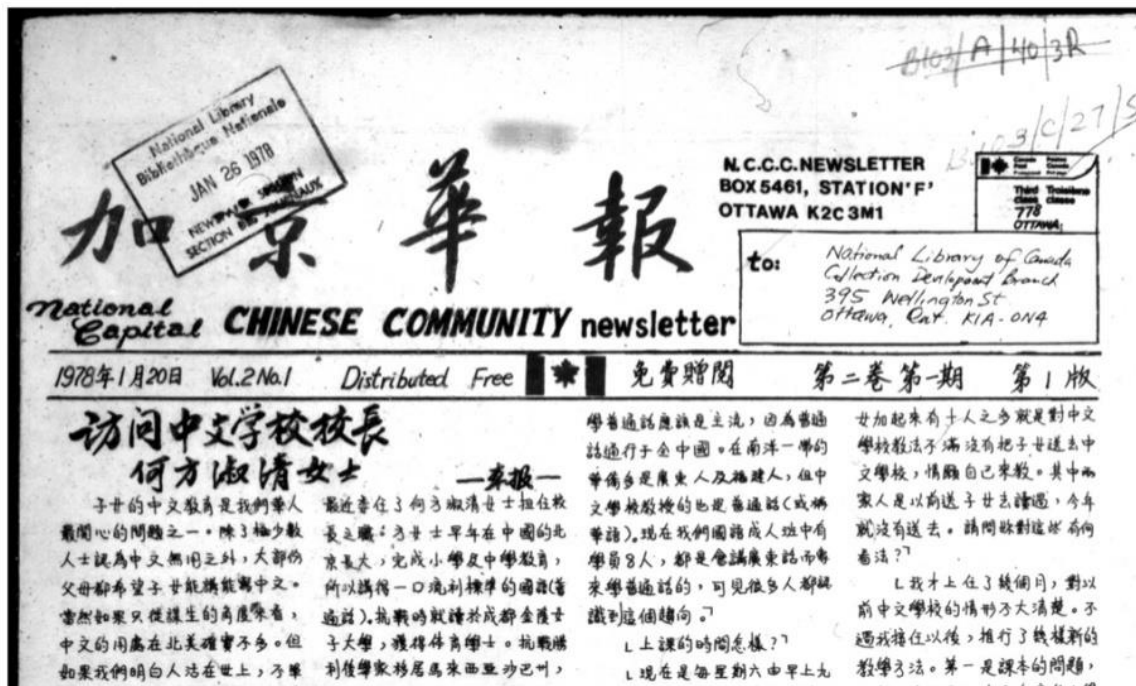 B103/A/40/3R
National Library
Bibliothèque Nationale
JAN 26 1978
NEWSPAPER SECTION
SECTION DES JOURNAUX
加京華報
N.C.C.C.NEWSLETTER
BOX 5461, STATION 'F'
OTTAWA K2C 3M1
Canada Post
Postes Canada
Third Troisième
class classe
778
OTTAWA:
to:
National Library of Canada
Collection Development Branch
395 Wellington St
Ottawa, Ont. K1A-0N4
National Capital CHINESE COMMUNITY newsletter
1978年1月20日 Vol.2 No.1 Distributed Free 免費贈閱 第二卷第一期 第1版
访问中文学校校長
何方淑清女士
—本报—
子女的中文教育是我們華人
最關心的問題之一。除了極少數
人士認為中文無用之外,大部份
父母都希望子女能講能寫中文。
當然如果只從謀生的角度來看,
中文的用處在北美確實不多。但
如果我們明白人活在世上,不單
最近委任了何方淑清女士担任校
長之職。方女士早年在中國的北
京長大,完成小學及中學教育,
所以講得一口流利標準的國語(普
通話)。抗戰時就讀於成都金陵女
子大學,獲得体育學士。抗戰勝
利後舉家移居馬來西亞沙巴州,
學普通話應該是主流,因為普通
話通行于全中國。在南洋一帶的
華僑多是廣東人及福建人,但中
文學校教授的也是普通話(或稱
華語)。現在我們國語成人班中有
學員8人,都是會講廣東話而專
來學普通話的,可見很多人都認
識到這個趨向。」
「上課的時間怎樣?」
「現在是每星期六由早上九
女加起來有十人之多就是對中文
學校教法不滿沒有把子女送去中
文學校,情願自己來教。其中兩
家人是以前送子女去讀過,今年
就沒有送去。請問你對這些有何
看法?」
「我才上任了幾個月,對以
前中文學校的情形不大清楚。不
過我接任以後,推行了幾樣新的
教學方法。第一是課本的問題,